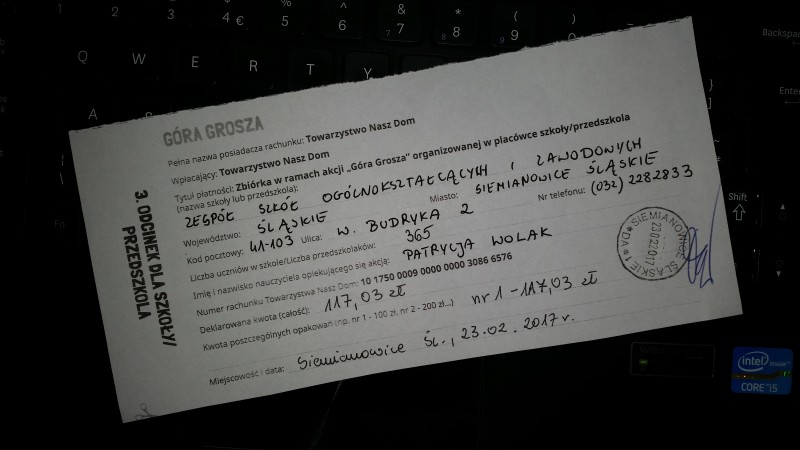 1 2 3 4 € $ 5 % 6 ^ 7 & 8 * 9 ( 0 )
Q W E R T Y
A
Backspa
Enter
Shift
Fn
GÓRA GROSZA
3. ODCINEK DLA SZKOŁY/
PRZEDSZKOLA
Pełna nazwa posiadacza rachunku: Towarzystwo Nasz Dom
Wpłacający: Towarzystwo Nasz Dom
Tytuł płatności: Zbiórka w ramach akcji „Góra Grosza” organizowanej w placówce szkoły/przedszkola
(nazwa szkoły lub przedszkola):
ZESPÓŁ SZKÓŁ OGÓLNOKSZTAŁCĄCYCH I ZAWODOWYCH
Województwo: ŚLĄSKIE Miasto: SIEMIANOWICE ŚLĄSKIE
Kod pocztowy: 41-103 Ulica: W. BUDRYKA 2 Nr telefonu: (032) 2282833
Liczba uczniów w szkole/Liczba przedszkolaków: 365
Imię i nazwisko nauczyciela opiekującego się akcją: PATRYCJA WOLAK
Numer rachunku Towarzystwa Nasz Dom: 10 1750 0009 0000 0000 3086 6576
Deklarowana kwota (całość): 117,03 zł
Kwota poszczególnych opakowań (np. nr 1 - 100 zł, nr 2 - 200 zł...) nr 1 - 117,03 zł
Miejscowość i data: Siemianowice Śl., 23.02.2017 r.
SIEMIANOWICE ŚLĄSKIE 1
intel
CORE i5